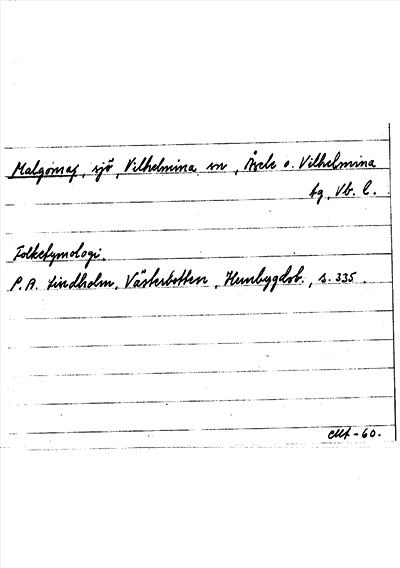 Malgomaj, sjö, Vilhelmina sn, Åsele o. Vilhelmina
tg, Vb. l.
Folketymologi.
P.A. Lindholm, Västerbotten, Hembygdsb., s. 335.
-60.